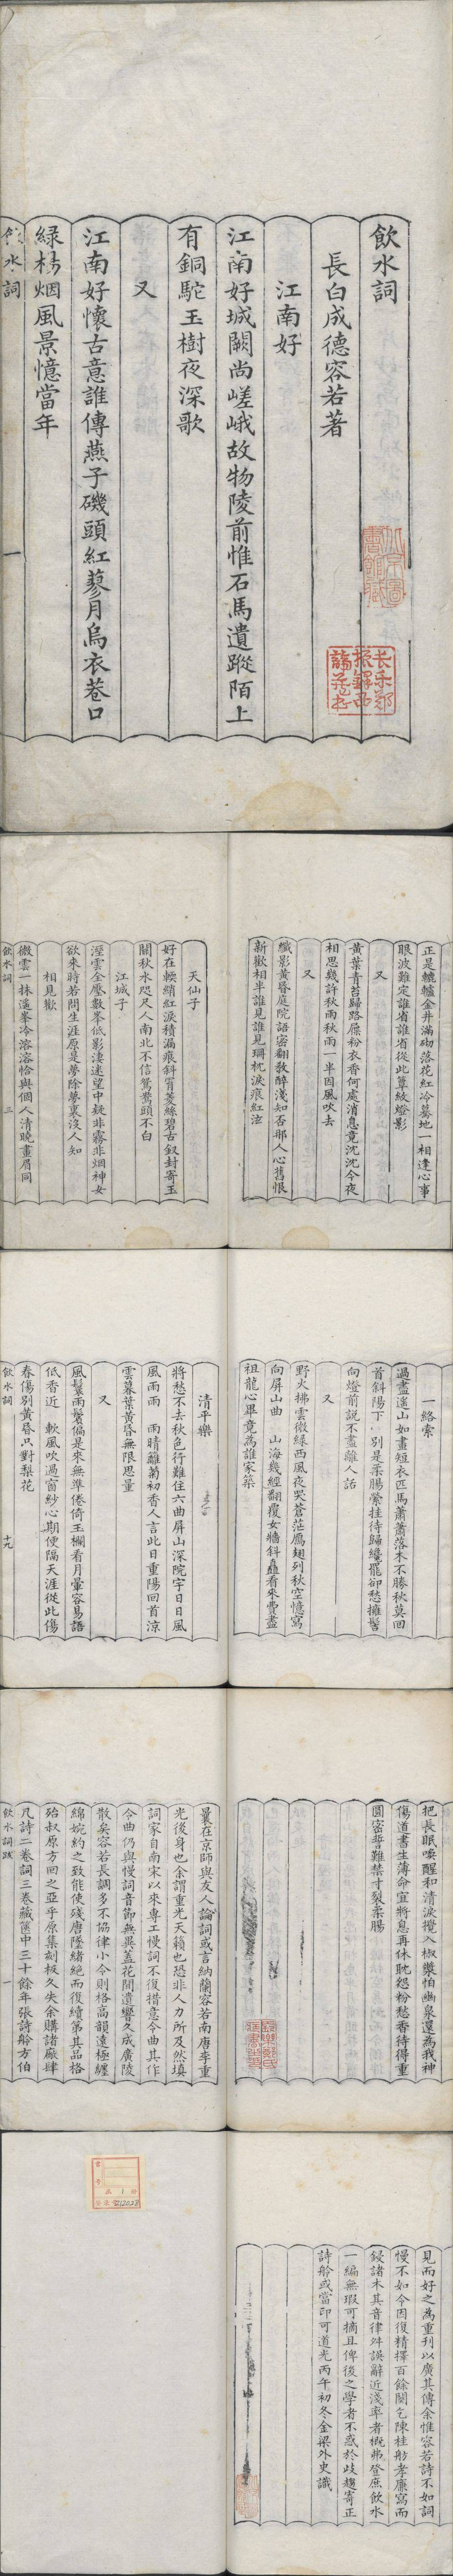 飲水詞
長白成德容若著
江南好
江南好城闕尚嵯峨故物陵前惟石馬遺蹤陌上
有銅駝玉樹夜深歌
又
江南好懷古意誰傳燕子磯頭紅蓼月烏衣巷口
綠楊烟風景憶當年
飲水詞
一
正是轆轤金井滿砌落花紅冷驀地一相逢心事
眼波難定誰省誰省從此簟紋燈影
又
黃葉青苔歸路屧粉衣香何處消息竟沈沈今夜
相思幾許秋雨秋雨一半因風吹去
又
纖影黃昏庭院語密翻教醉淺知否那人心舊恨
新歡相半誰見誰見珊枕淚痕紅泫
天仙子
好在輭綃紅淚積漏痕斜罥菱絲碧古釵封寄玉
關秋水咫尺人南北不信鴛鴦頭不白
江城子
溼雲全壓數峯低影淒迷望中疑非霧非烟神女
欲來時若問生涯原是夢除夢裏沒人知
相見歡
微雲一抹遙峯冷溶溶恰與個人清曉畫眉同
飲水詞
三
一絡索
過盡遙山如畫短衣匹馬蕭蕭落木不勝秋莫回
首斜陽下 別是柔腸縈挂待歸纔罷卻愁擁髻
向燈前說不盡離人話
又
野火拂雲微綠西風夜哭蒼茫鴈翅列秋空憶寫
向屏山曲 山海幾經翻覆女牆斜矗看來費盡
祖龍心畢竟為誰家築
清平樂
將愁不去秋色行難住六曲屏山深院宇日日風
風雨雨 雨晴籬菊初香人言此日重陽回首涼
雲暮葉黃昏無限思量
又
風鬟雨鬢偏是來無準倦倚玉欄看月暈容易語
低香近 軟風吹過窗紗心期便隔天涯從此傷
春傷別黃昏只對梨花
飲水詞
十九
把長眠喚醒和清淚攪入椒漿怕幽泉還為我神
傷道書生薄命宜將息再休耽怨粉愁香待得重
圓密誓難禁寸裂柔腸
曩在京師與友人論詞或言納蘭容若南唐李重
光後身也余謂重光天籟也恐非人力所及然填
詞家自南宋以來專工慢詞不復措意令曲其作
令曲仍與慢詞音節無異蓋花間遺響久成廣陵
散矣容若長調多不協律小令則格高韻遠極纏
綿婉約之致能使殘唐墜緒絕而復續第其品格
殆叔原方回之亞乎原集刻板久失余購諸廠肆
凡詩二卷詞三卷藏篋中三十餘年張詩舲方伯
飲水詞跋
一
見而好之為重刊以廣其傳余惟容若詩不如詞
慢不如令因復精擇百餘闋乞陳桂舫孝廉寫而
鋟諸木其音律舛誤辭近淺率者概弗登庶飲水
一編無瑕可摘且俾後之學者不惑於歧趨寄正
詩舲或當印可道光丙午初冬金梁外史識